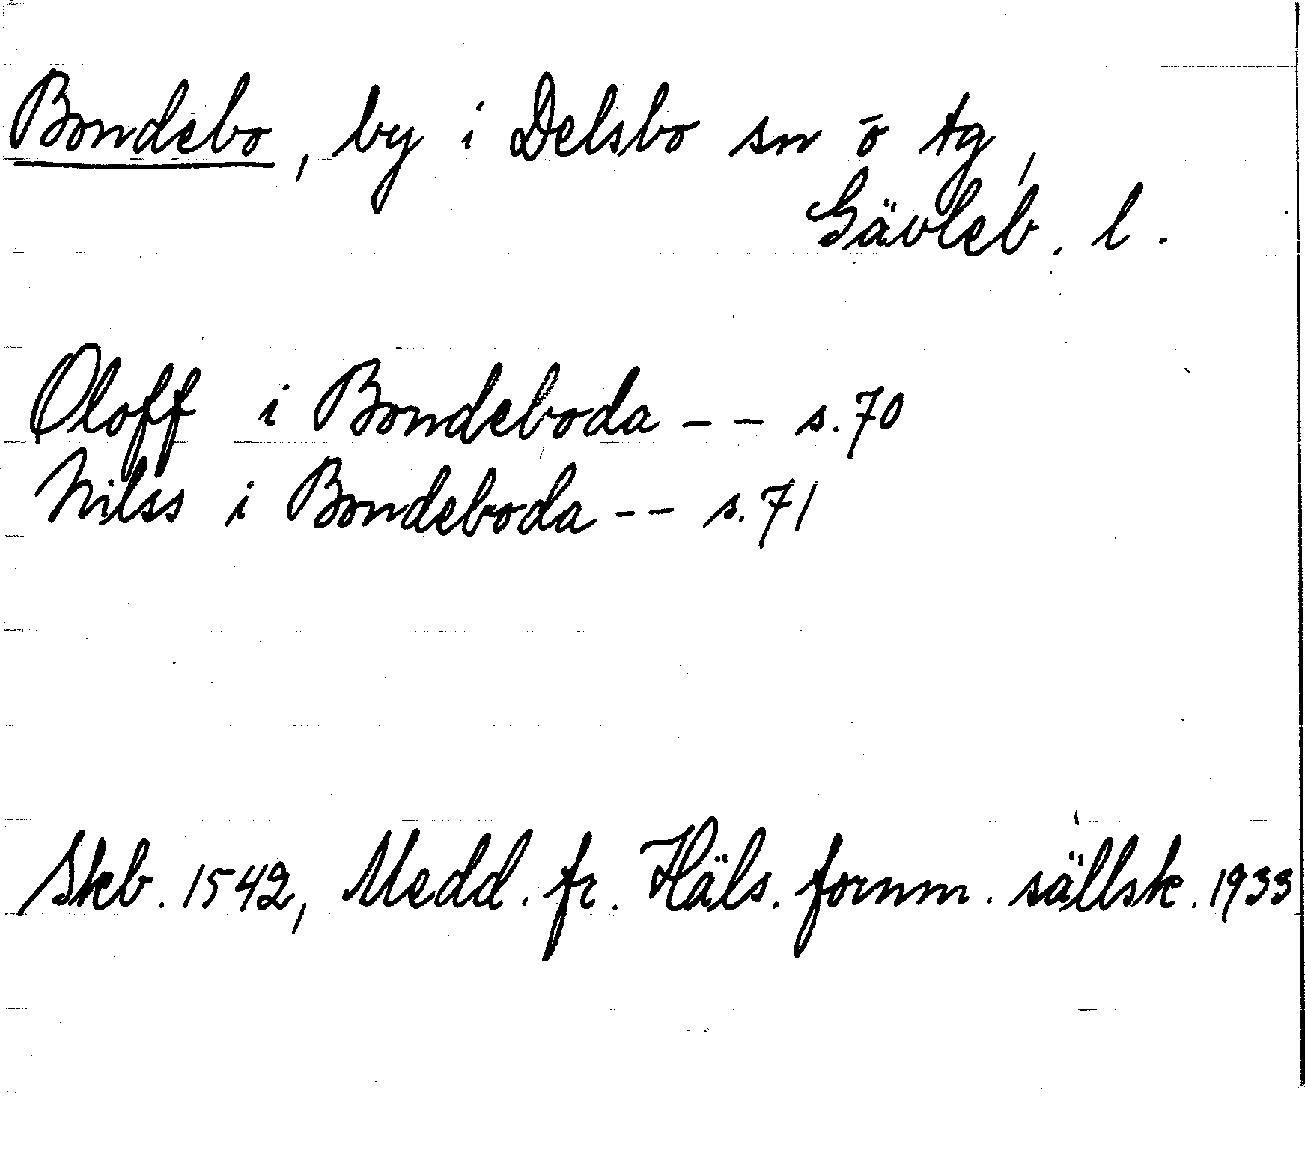 Bondebo, by i Delsbo sn o tg,
Gävleb. l.
Oloff i Bondeboda -- s.70
Nilss i Bondeboda -- s.71
Skb. 1542, Medd. fr. Häls. fornm. sällsk. 1933